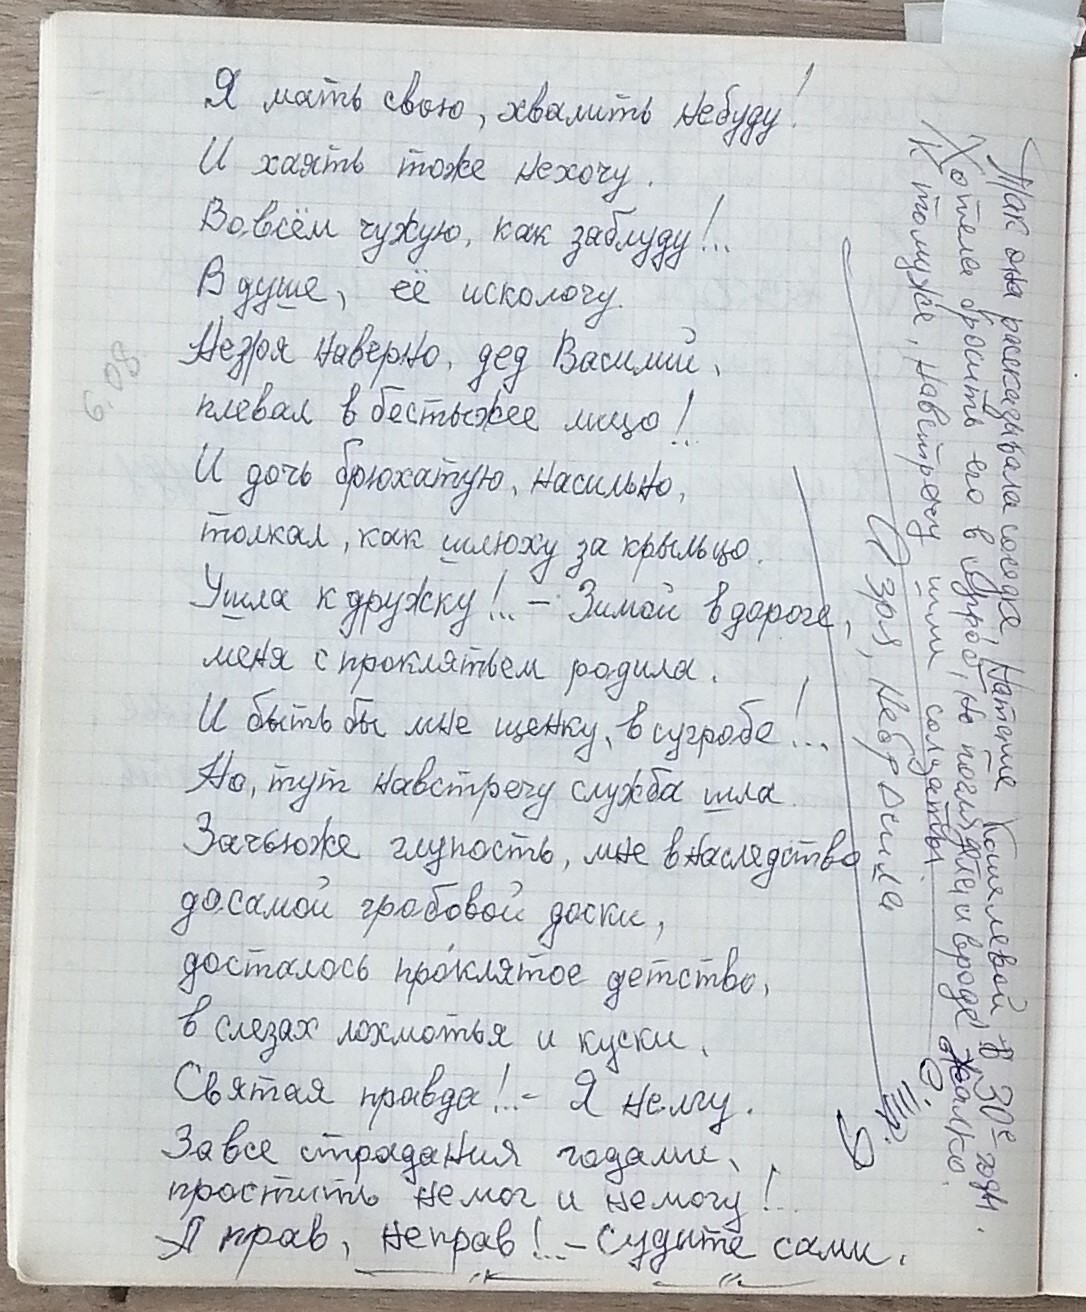 Я мать свою, хвалить небуду!
И хаять тоже нехочу.
Вовсём чужую, как заблуду!..
В душе, её исколочу.
Незря наверно, дед Василий,
плевал в бестыжее лицо!..
И дочь брюхатую, насильно,
толкал, как шлюху за крыльцо.
Ушла к дружку!.. – Зимой в дороге,
меня с проклятьем родила.
И быть бы мне щенку, в сугробе!..
Но, тут навстречу служба шла.
Зачьюже глупость, мне в наследство
до самой гробовой доски,
досталось проклятое детство,
в слезах лохмотья и куски.
Святая правда!.. – Я нелгу.
За все страдания годами,
простить немог и немогу!..
Я прав, неправ!.. – Судите сами.
6.08.
Так она рассказывала соседке, Наталие Кошелевой в 30е годы.
Хотела бросить его в сугроб, но поглядела и вроде жалко.
К томуже, навстречу шли солдаты.
И зря, небросила